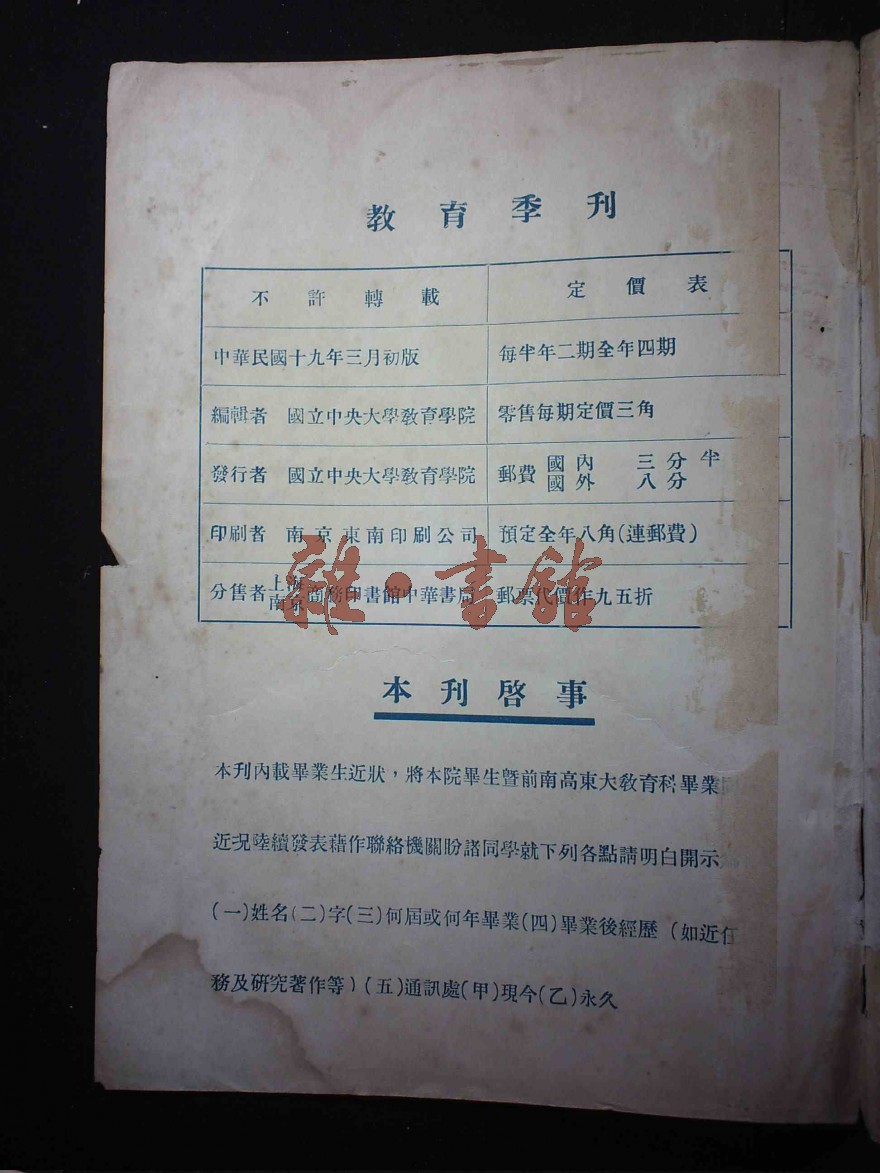 教育季刊
不許轉載
定價表
中華民國十九年三月初版
每半年二期全年四期
編輯者 國立中央大學敎育學院
零售每期定價三角
發行者 國立中央大學敎育學院
郵費 國內 三分半
國外 八分
印刷者 南京東南印刷公司
預定全年八角(連郵費)
分售者 上海 南京 商務印書館中華書局
郵票代價作九五折
雜·書館
本刊啓事
本刊內載畢業生近狀，將本院畢生曁前南高東大敎育科畢業
近况陸續發表藉作聯絡機關盼諸同學就下列各點請明白開示
(一)姓名(二)字(三)何屆或何年畢業(四)畢業後經歷(如近任
務及硏究著作等)(五)通訊處(甲)現今(乙)永久